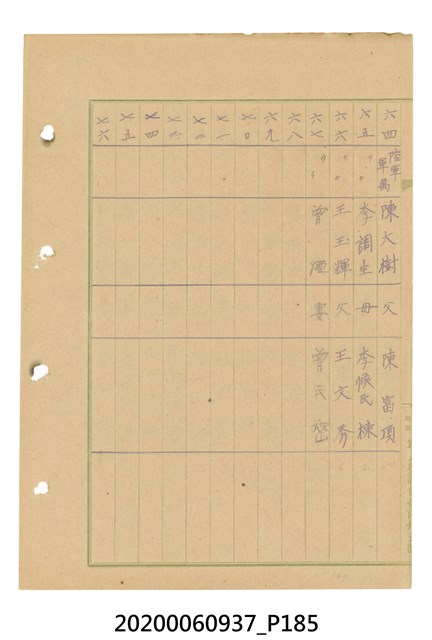 六四 陸軍軍屬 陳大樹 父 陳富頂
六五 〃 〃 李調生 母 李候氏棟
六六 〃 〃 王玉輝 父 王文秀
六七 〃 〃 曾 妻 曾氏密
六八
六九
七〇
七一
七二
七三
七四
七五
七六
20200060937_P185